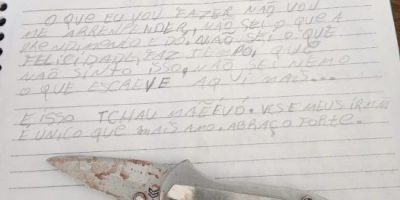 O QUE EU VOU FAZER NÃO VOU
ME ARREPENDER, NÃO SEI O QUE A
PRENDIMENTO E DO. NÃO SEI O QUE
FELICIDADE, FAZ TEMPO, QUE
NÃO SINTO ISSO, NÃO SEI NEMO
O QUE ESCREVE AQUI MAIS...
E ISSO TCHAU MÃE EVÓ. VCS E MEUS IRMÃ
E UNICO QUE MAIS AMO. ABRAÇO FORTE.